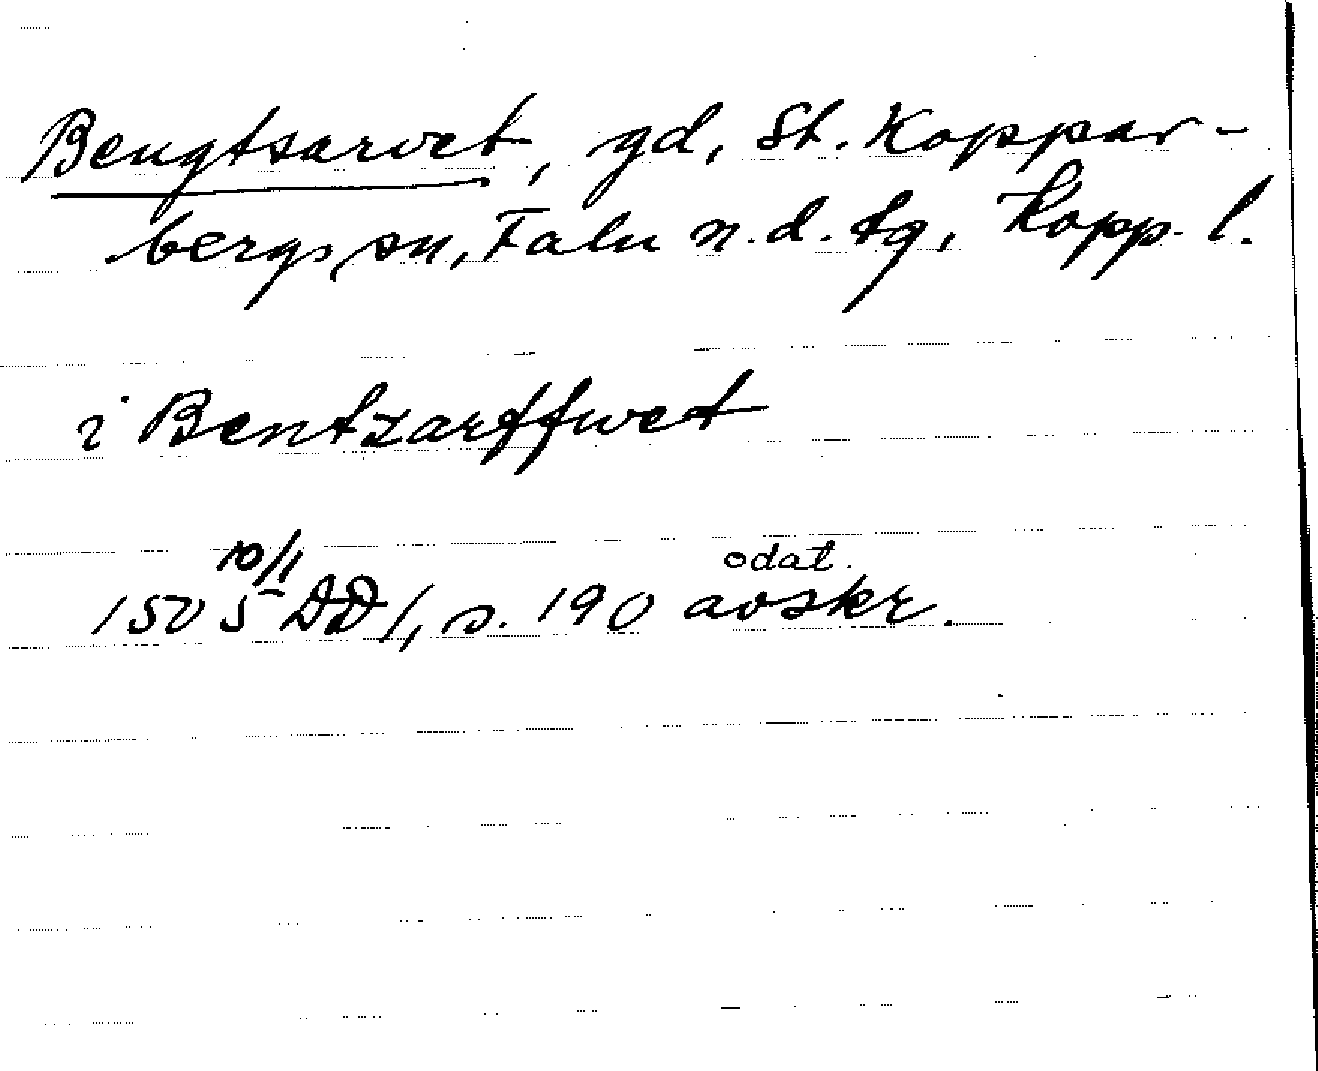 Bengtsarvet, gd, St. Koppar-
bergs sn, Falu n.d. tg, Kopp. l.
i Bentzarffwet
10/1
odat.
1505 DD 1, s. 190 avskr.